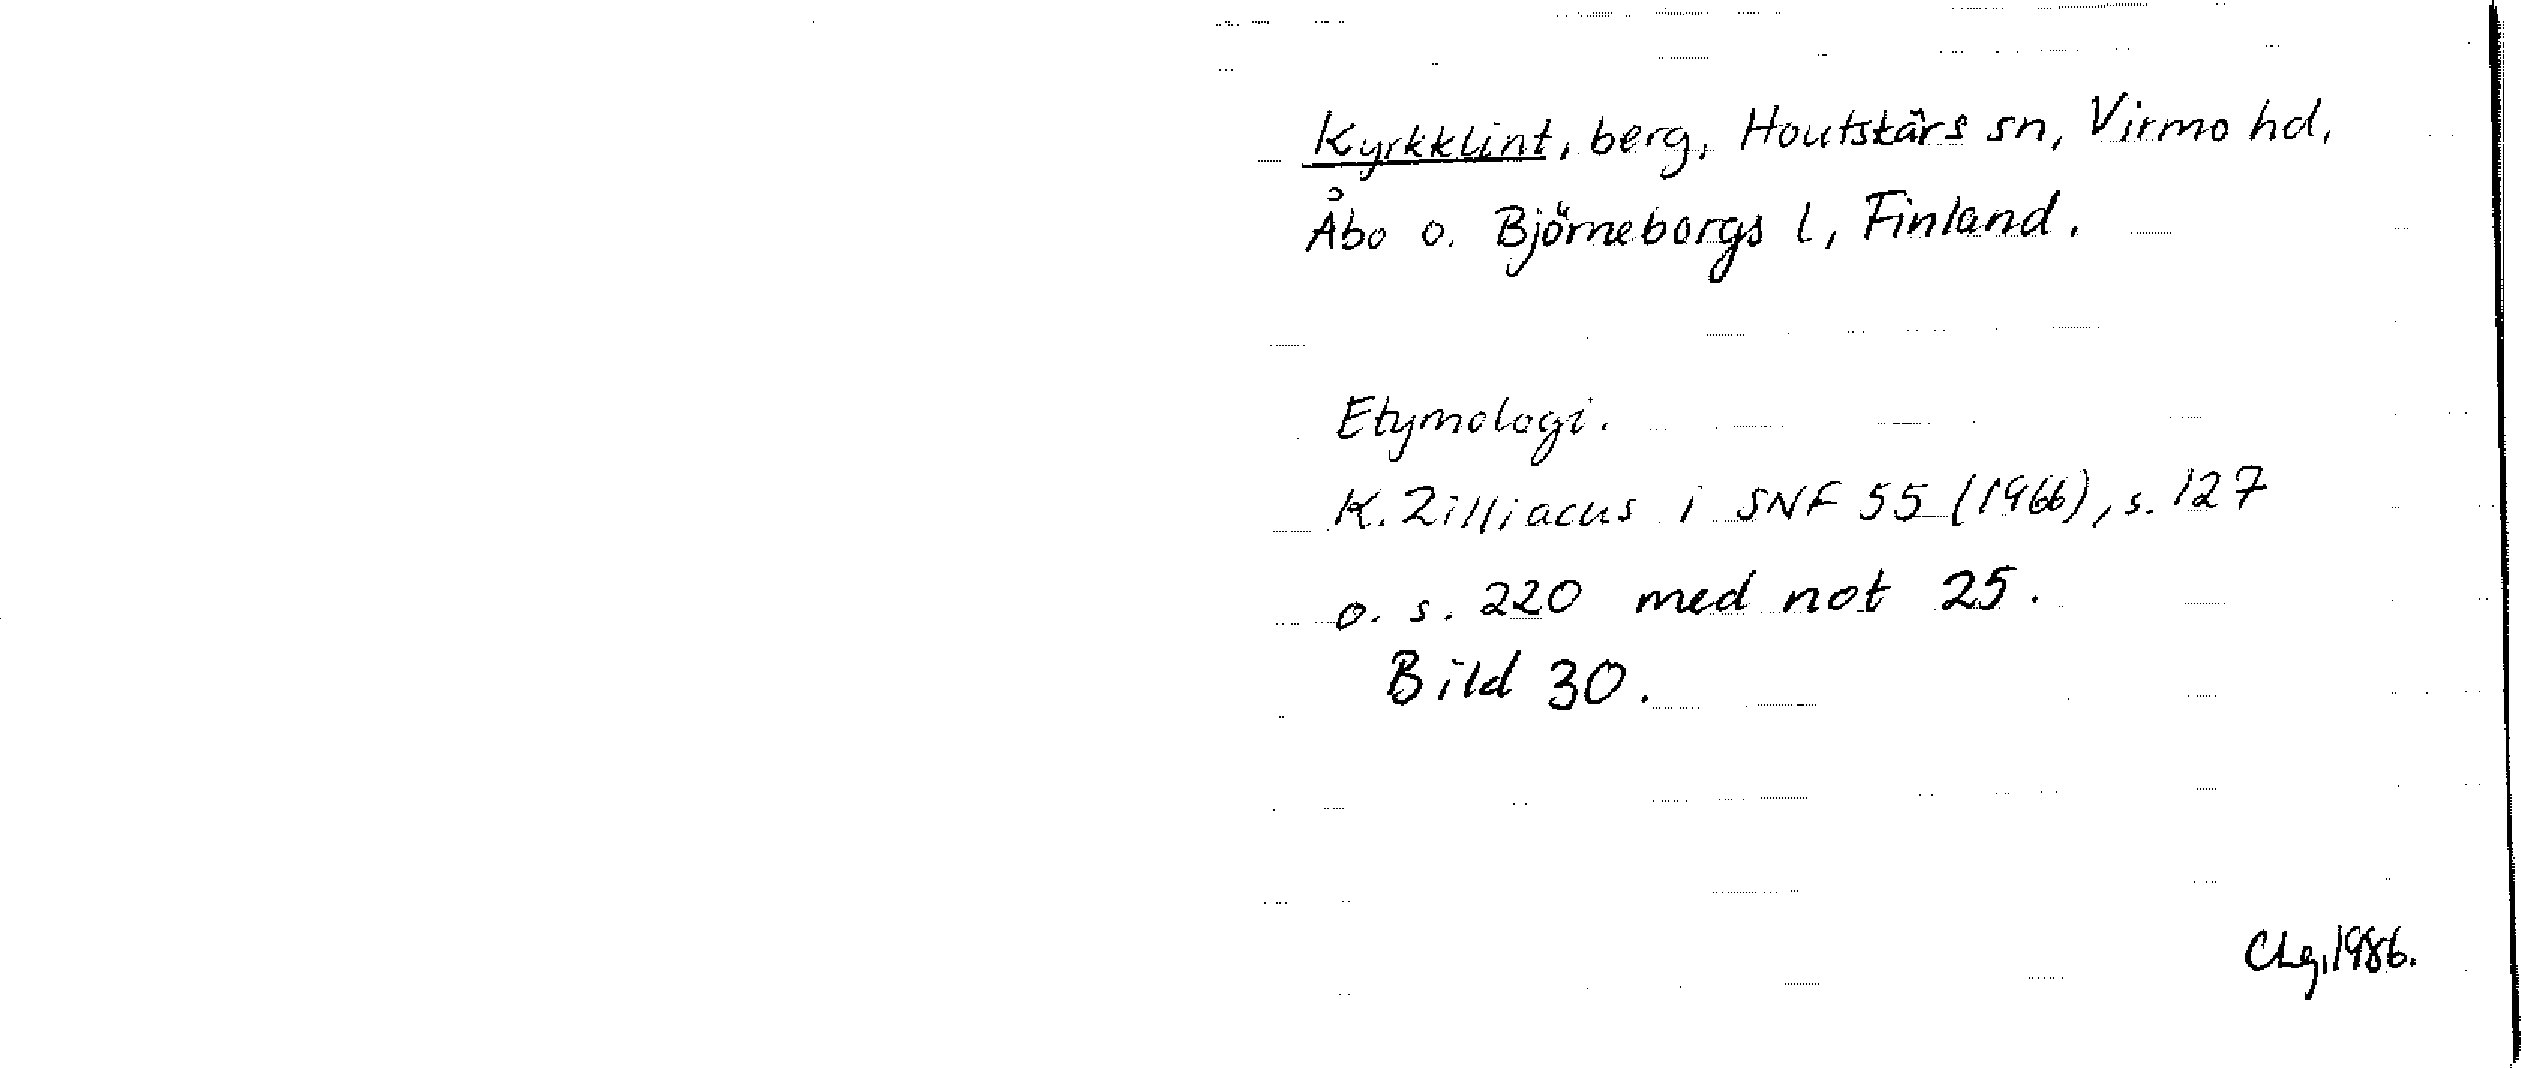 Kyrkklint, berg, Houtskärs sn, Virmo hd,
Åbo o. Björneborgs l, Finland.
Etymologi.
K. Zilliacus i SNF 55 (1966), s. 127
o. s. 220 med not 25.
Bild 30.
CLg, 1986.